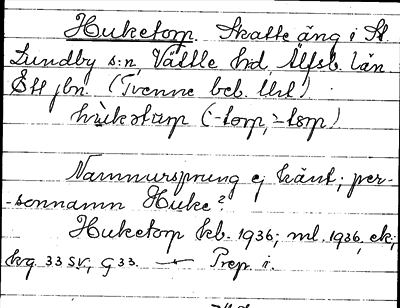 Huketorp. Skatte äng i St
Lundby s:n, Vättle hd, Älfsb. län
Ett jbn. (Tvenne beb. lht)
hùkətarp (-torp, -tørp)
Namnursprung ej känt; per-
-sonnamn Huke?
Huketorp kb. 1936; ml. 1936, ek;
kg 33 SV, G 33. — Prep. i.